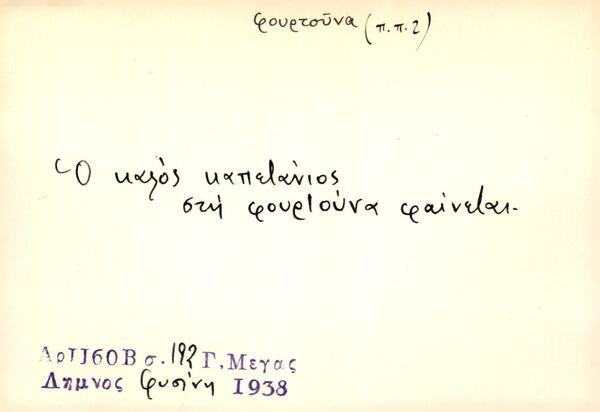 φουρτοῦνα (π.π. 2)
Ὁ καλὸς καπετάνιος
στὴ φουρτούνα φαίνεται.
Αρ 1160Β σ. 192 Γ. Μεγας
Λημνος Φυσίνη 1938